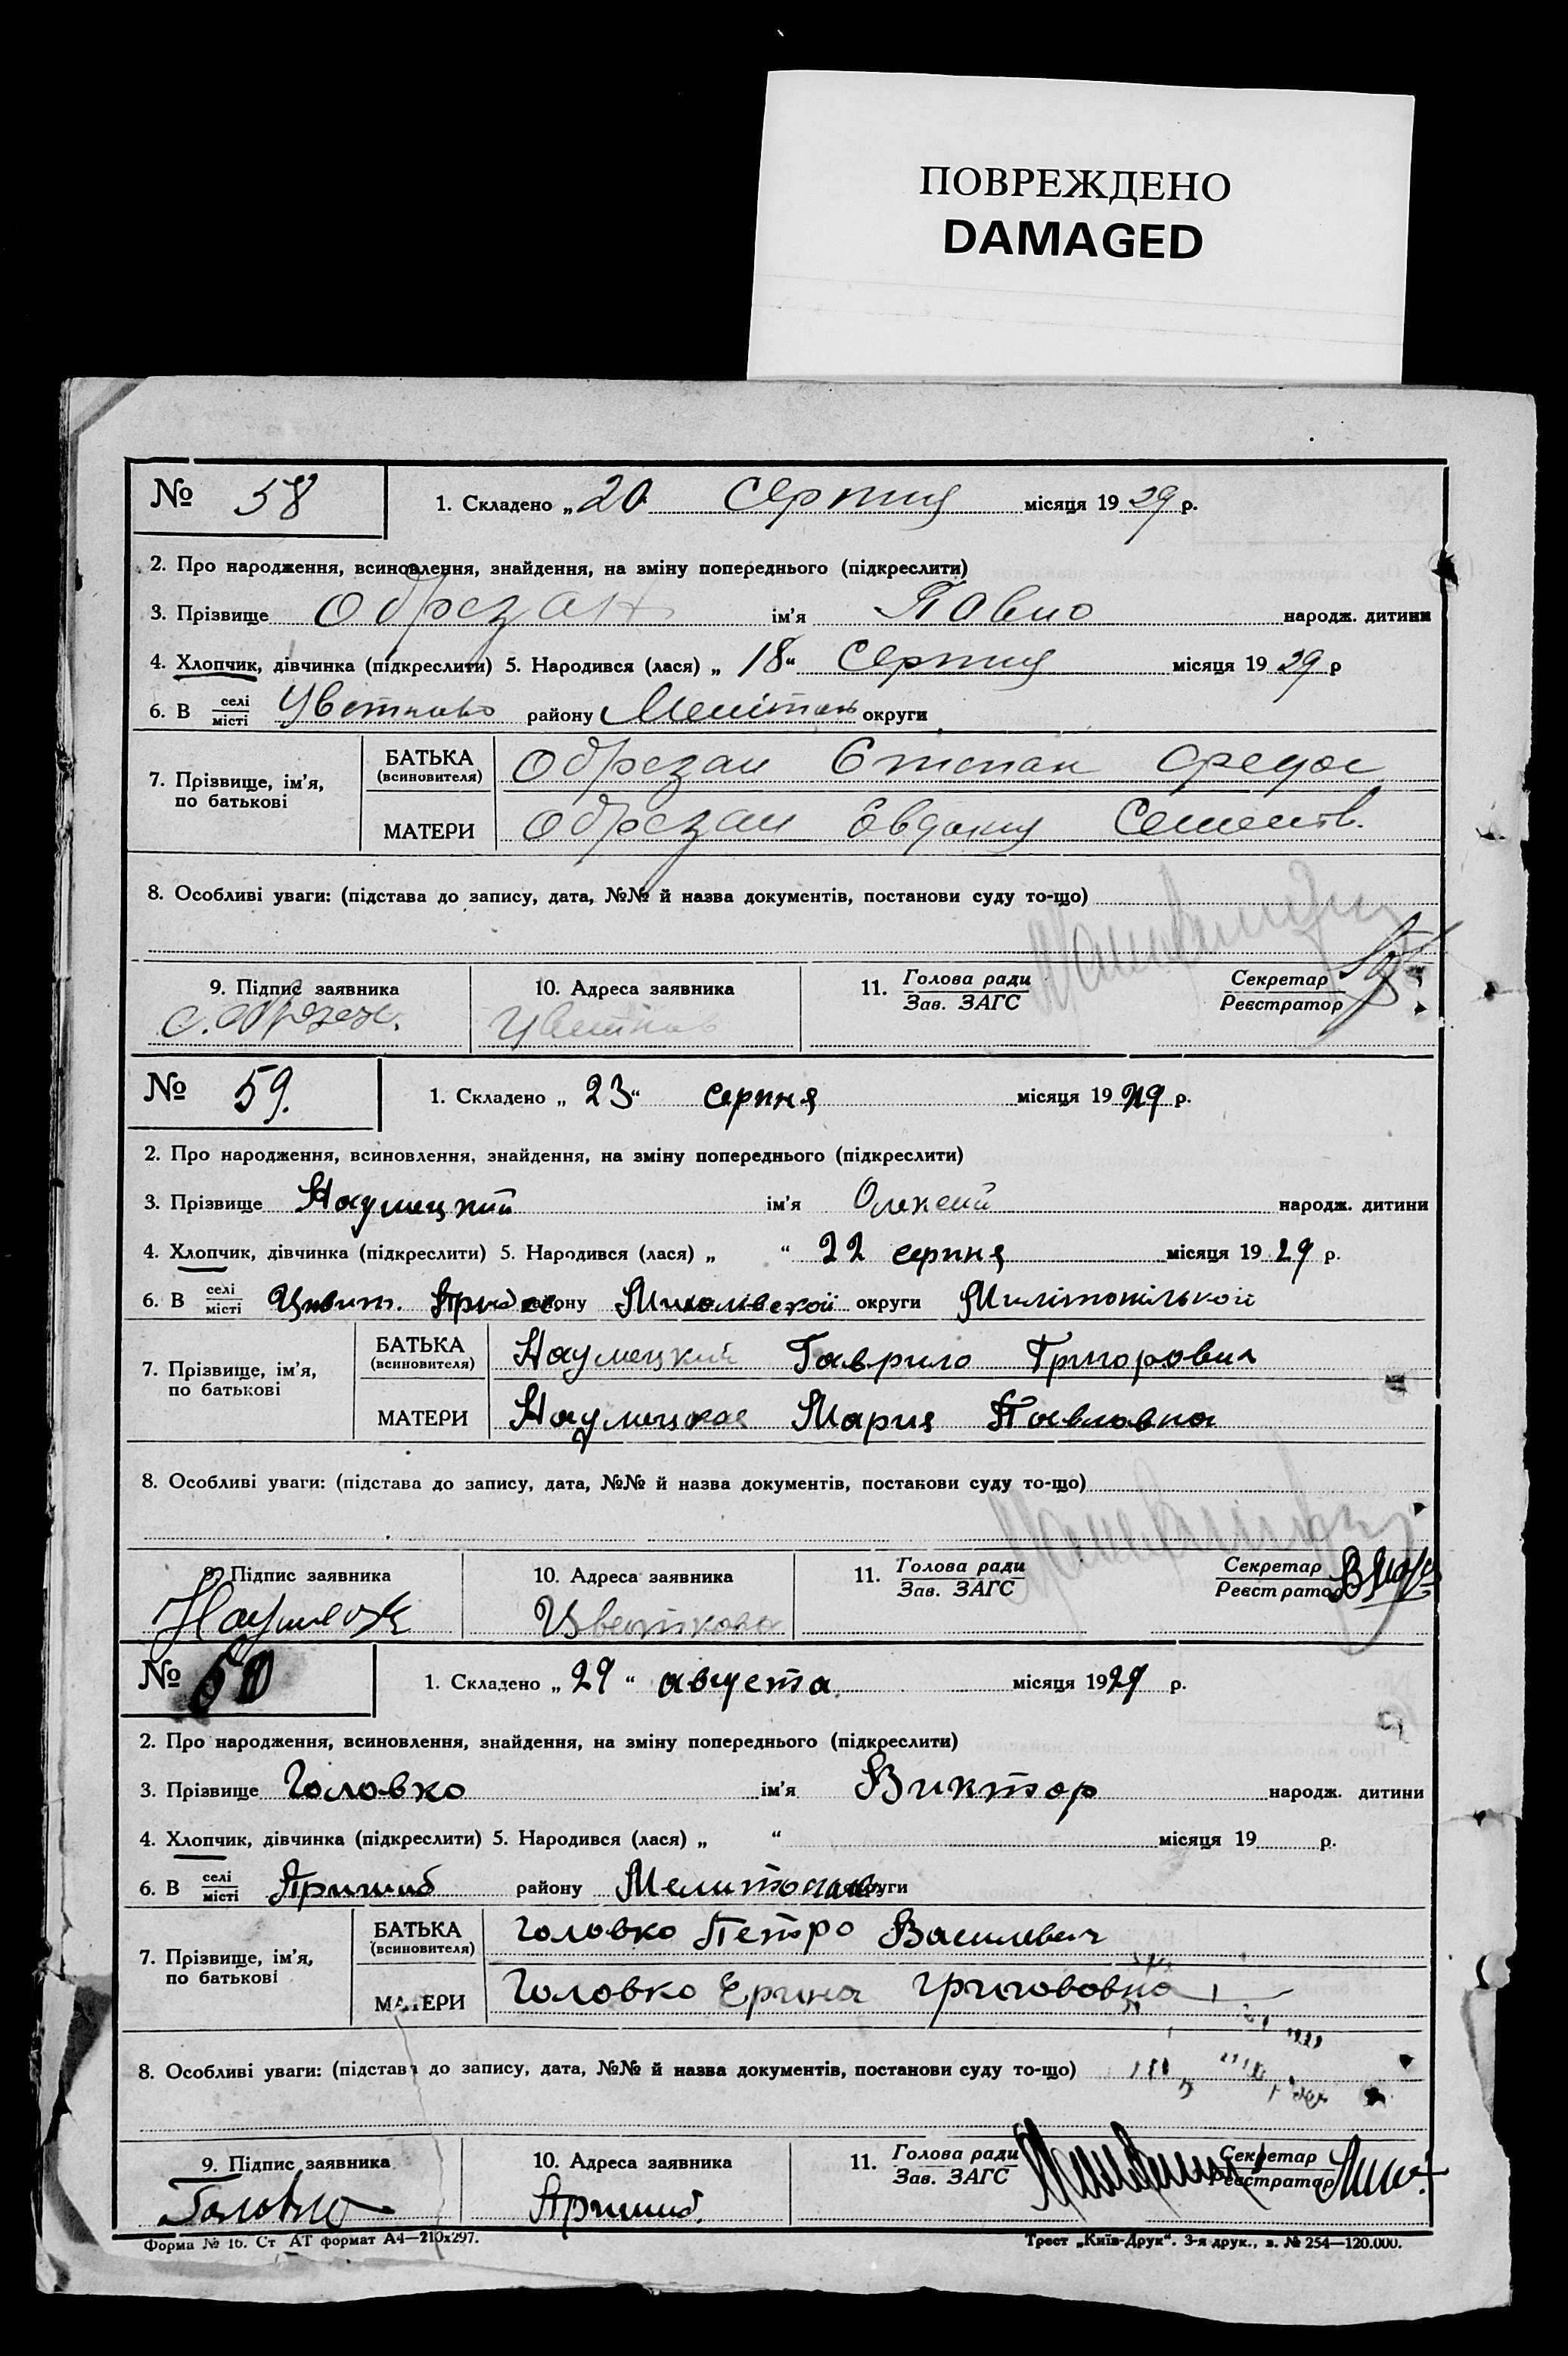 ПОВРЕЖДЕНО
DAMAGED
№ 58 1. Складено „20 Серпня місяця 1929 р.
2. Про народження, всиновлення, знайдення, на зміну попереднього (підкреслити)
3. Прізвище Обрезан ім'я Павло народж. дитини
4. Хлопчик, дівчинка (підкреслити) 5. Народився (лася) „18“ Серпня місяця 1929 р
6. В селі/місті Цветково району Мелітоп округи
7. Прізвище, ім'я, по батькові
БАТЬКА (всиновителя) Обрезан Степан Федос
МАТЕРИ Обрезан Евдокия Семенов.
8. Особливі уваги: (підстава до запису, дата, №№ й назва документів, постанови суду то-що)
9. Підпис заявника 10. Адреса заявника 11. Голова ради/Зав. ЗАГС Секретар/Реєстратор
С. Обрезан. Цветков
№ 59. 1. Складено „23“ серпня місяця 1929 р.
2. Про народження, всиновлення, знайдення, на зміну попереднього (підкреслити)
3. Прізвище Наумецкий ім'я Олексий народж. дитини
4. Хлопчик, дівчинка (підкреслити) 5. Народився (лася) „ “ 22 серпня місяця 1929 р.
6. В селі/місті району округи
7. Прізвище, ім'я, по батькові
БАТЬКА (всиновителя) Наумецкий Гаврило Григорович
МАТЕРИ Наумецкая Мария Павловна
8. Особливі уваги: (підстава до запису, дата, №№ й назва документів, постакови суду то-що)
9. Підпис заявника 10. Адреса заявника 11. Голова ради/Зав. ЗАГС Секретар/Реєстратор
Цветкова
№ 60 1. Складено „29“ августа місяця 1929 р.
2. Про народження, всиновлення, знайдення, на зміну попереднього (підкреслити)
3. Прізвище Головко ім'я Виктор народж. дитини
4. Хлопчик, дівчинка (підкреслити) 5. Народився (лася) „ “ місяця 19 р.
6. В селі/місті Пришиб району округи
7. Прізвище, ім'я, по батькові
БАТЬКА (всиновителя) Головко Петро Василевич
МАТЕРИ Головко Ерина Григововна
8. Особливі уваги: (підстава до запису, дата, №№ й назва документів, постанови суду то-що)
9. Підпис заявника 10. Адреса заявника 11. Голова ради/Зав. ЗАГС Секретар/Реєстратор
Головко Пришиб.
Форма № 16. Ст АТ формат А4—210х297. Трест „Київ-Друк“. 3-я друк., з. № 254—120.000.